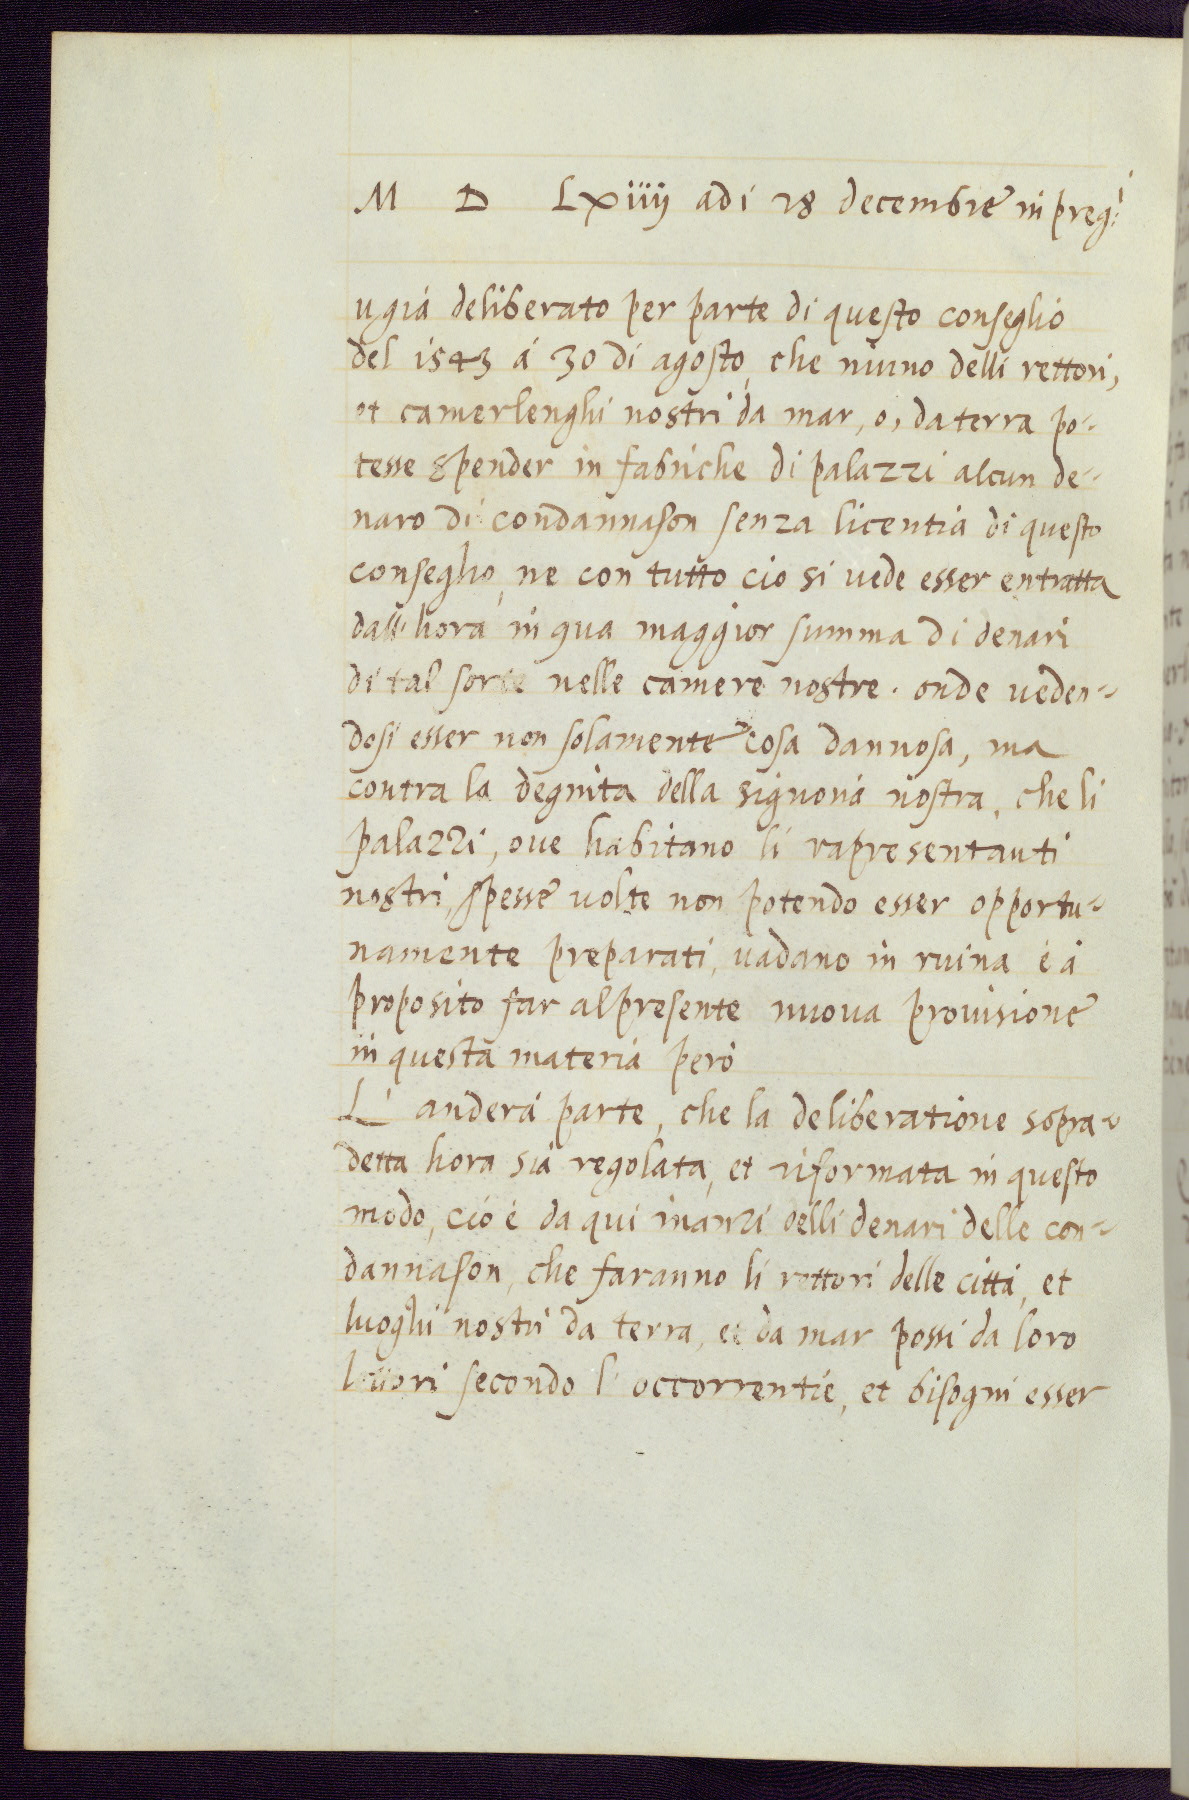 M D Lxiiij adi 28 decembre in preg.i
u già deliberato per parte di questo conseglio
del 1543 à 30 di agosto, che niuno delli rettori,
et camerlenghi nostri da mar, o, da terra po-
tesse spender in fabriche di palazzi alcun de-
naro di condannason senza licentia di questo
conseglio, ne con tutto cio si vede esser entratta
dall' hora in qua maggior summa di denari
di tal sorte nelle camere nostre. onde veden-
dosi esser non solamente cosa dannosa, ma
contra la degnita della signoria nostra, che li
palazzi, oue habitano li rapresentanti
nostri, spesse volte non potendo esser opportu-
namente preparati, uadano in ruina é à
proposito far al presente nuoua prouisione
in questa materia però
L' anderà parte, che la deliberatione sopra-
detta hora sia regolata, et riformata in questo
modo, cio è da qui inanzi delli denari delle con-
dannason, che faranno li rettori delle città, et
luoghi nostri da terra, et da mar possi da loro
rettori secondo l' occorrentie, et bisogni esser